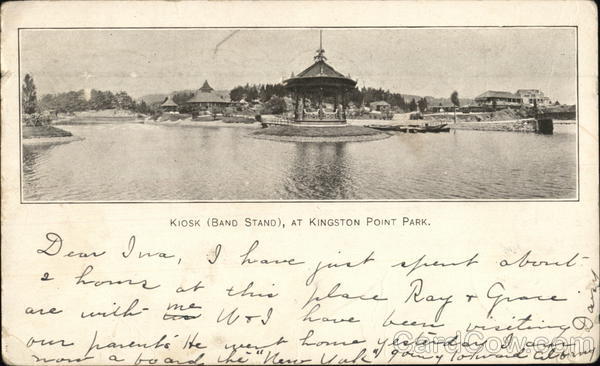 KIOSK (BAND STAND), AT KINGSTON POINT PARK.
Dear Iva, I have just spent about
2 hours at this place Ray & Grace
are with me W & I have been visiting
our parents He went home yesterday I am
now a board the "New York" going toward Albany
CardCow.com